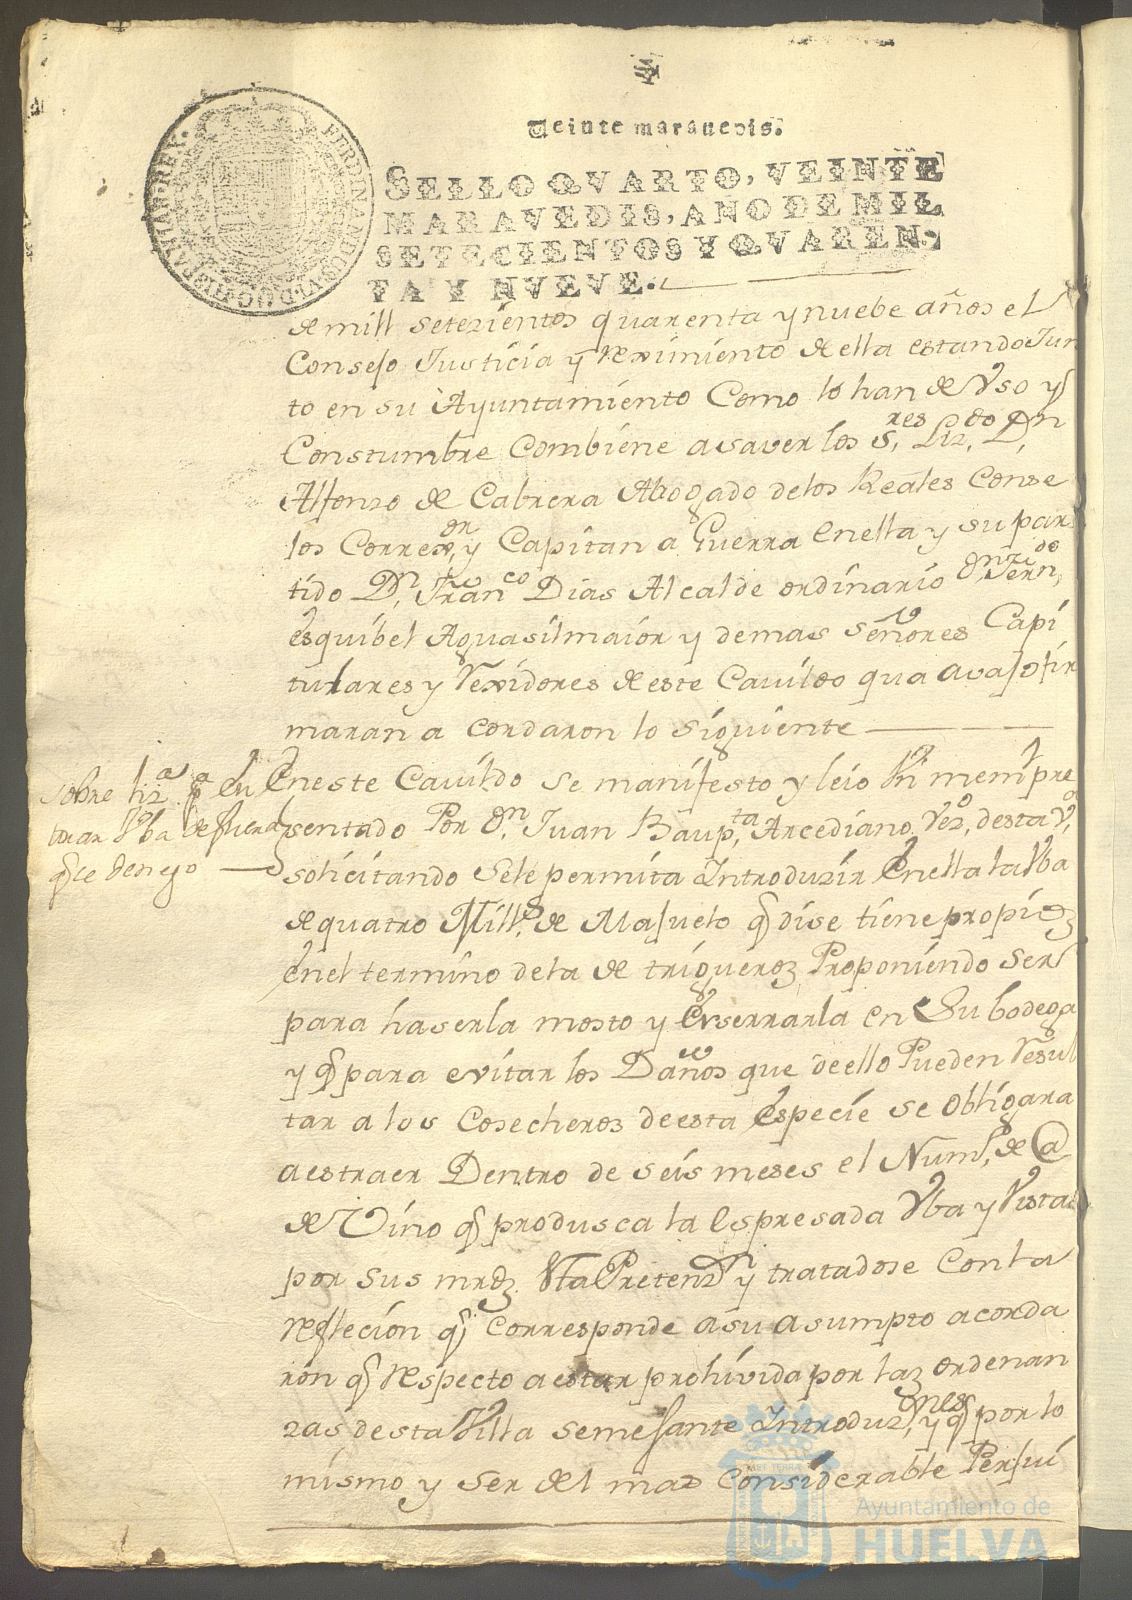 Veinte maravedis.
SELLO QVARTO, VEINTE
MARAVEDIS, AÑO DE MIL
SETECIENTOS Y QVAREN-
TA Y NUEVE.
FERDINANDUS VI D G HISPANIAR REX
de mill setezientos quarenta y nuebe años el
Consejo Justicia y reximiento de ella estando Jun
to en su Ayuntamiento Como lo han de Vso y
Constumbre Combiene a saver los S.res Liz.do D.n
Alfonzo de Cabrera Abogado de los Reales Conse
los Correx.or y Capitan a Guerra en ella y su par
tido D.n Fran.co Dias Alcalde ordinario D.n Fern.do
esquibel Aguasil maior y demas señores Capi
tulares y Rexidores de este Cavildo qua avajo fir
maran a cordaron lo siguiente
sobre liz.a p.a en
trar Vba de fuera
q se denego
En este Cavildo se manifesto y leio Vn mem.l pre
sentado Por D.n Juan Baup.ta Arcediano Vez.o desta V.a
solicitando Sele permita Introduzir En ella la Vba
de quatro Mill.s de Majuelo q dise tiene propiez
en el termino de la de trigueroz Proponiendo Ser
para haserla mosto y Enserrarla en Su bodega
y q para evitar los Daños que de ello Pueden Resul
tar a los Cosecheroz de esta Especie se obligara
a estraer Dentro de seis meses el Num.o de @
de Vino q produsca la Espresada Vba y Vista
por sus mrdz. Vta Pretenz.n y tratadose Con la
reflecion q corresponde a su asumpto acorda
ron q respecto a estar prohivida por laz ordenan
zas desta Villa semejante Introduz.ones y q por lo
mismo y Ser del maz Considerable Perjui
Ayuntamiento de
HUELVA